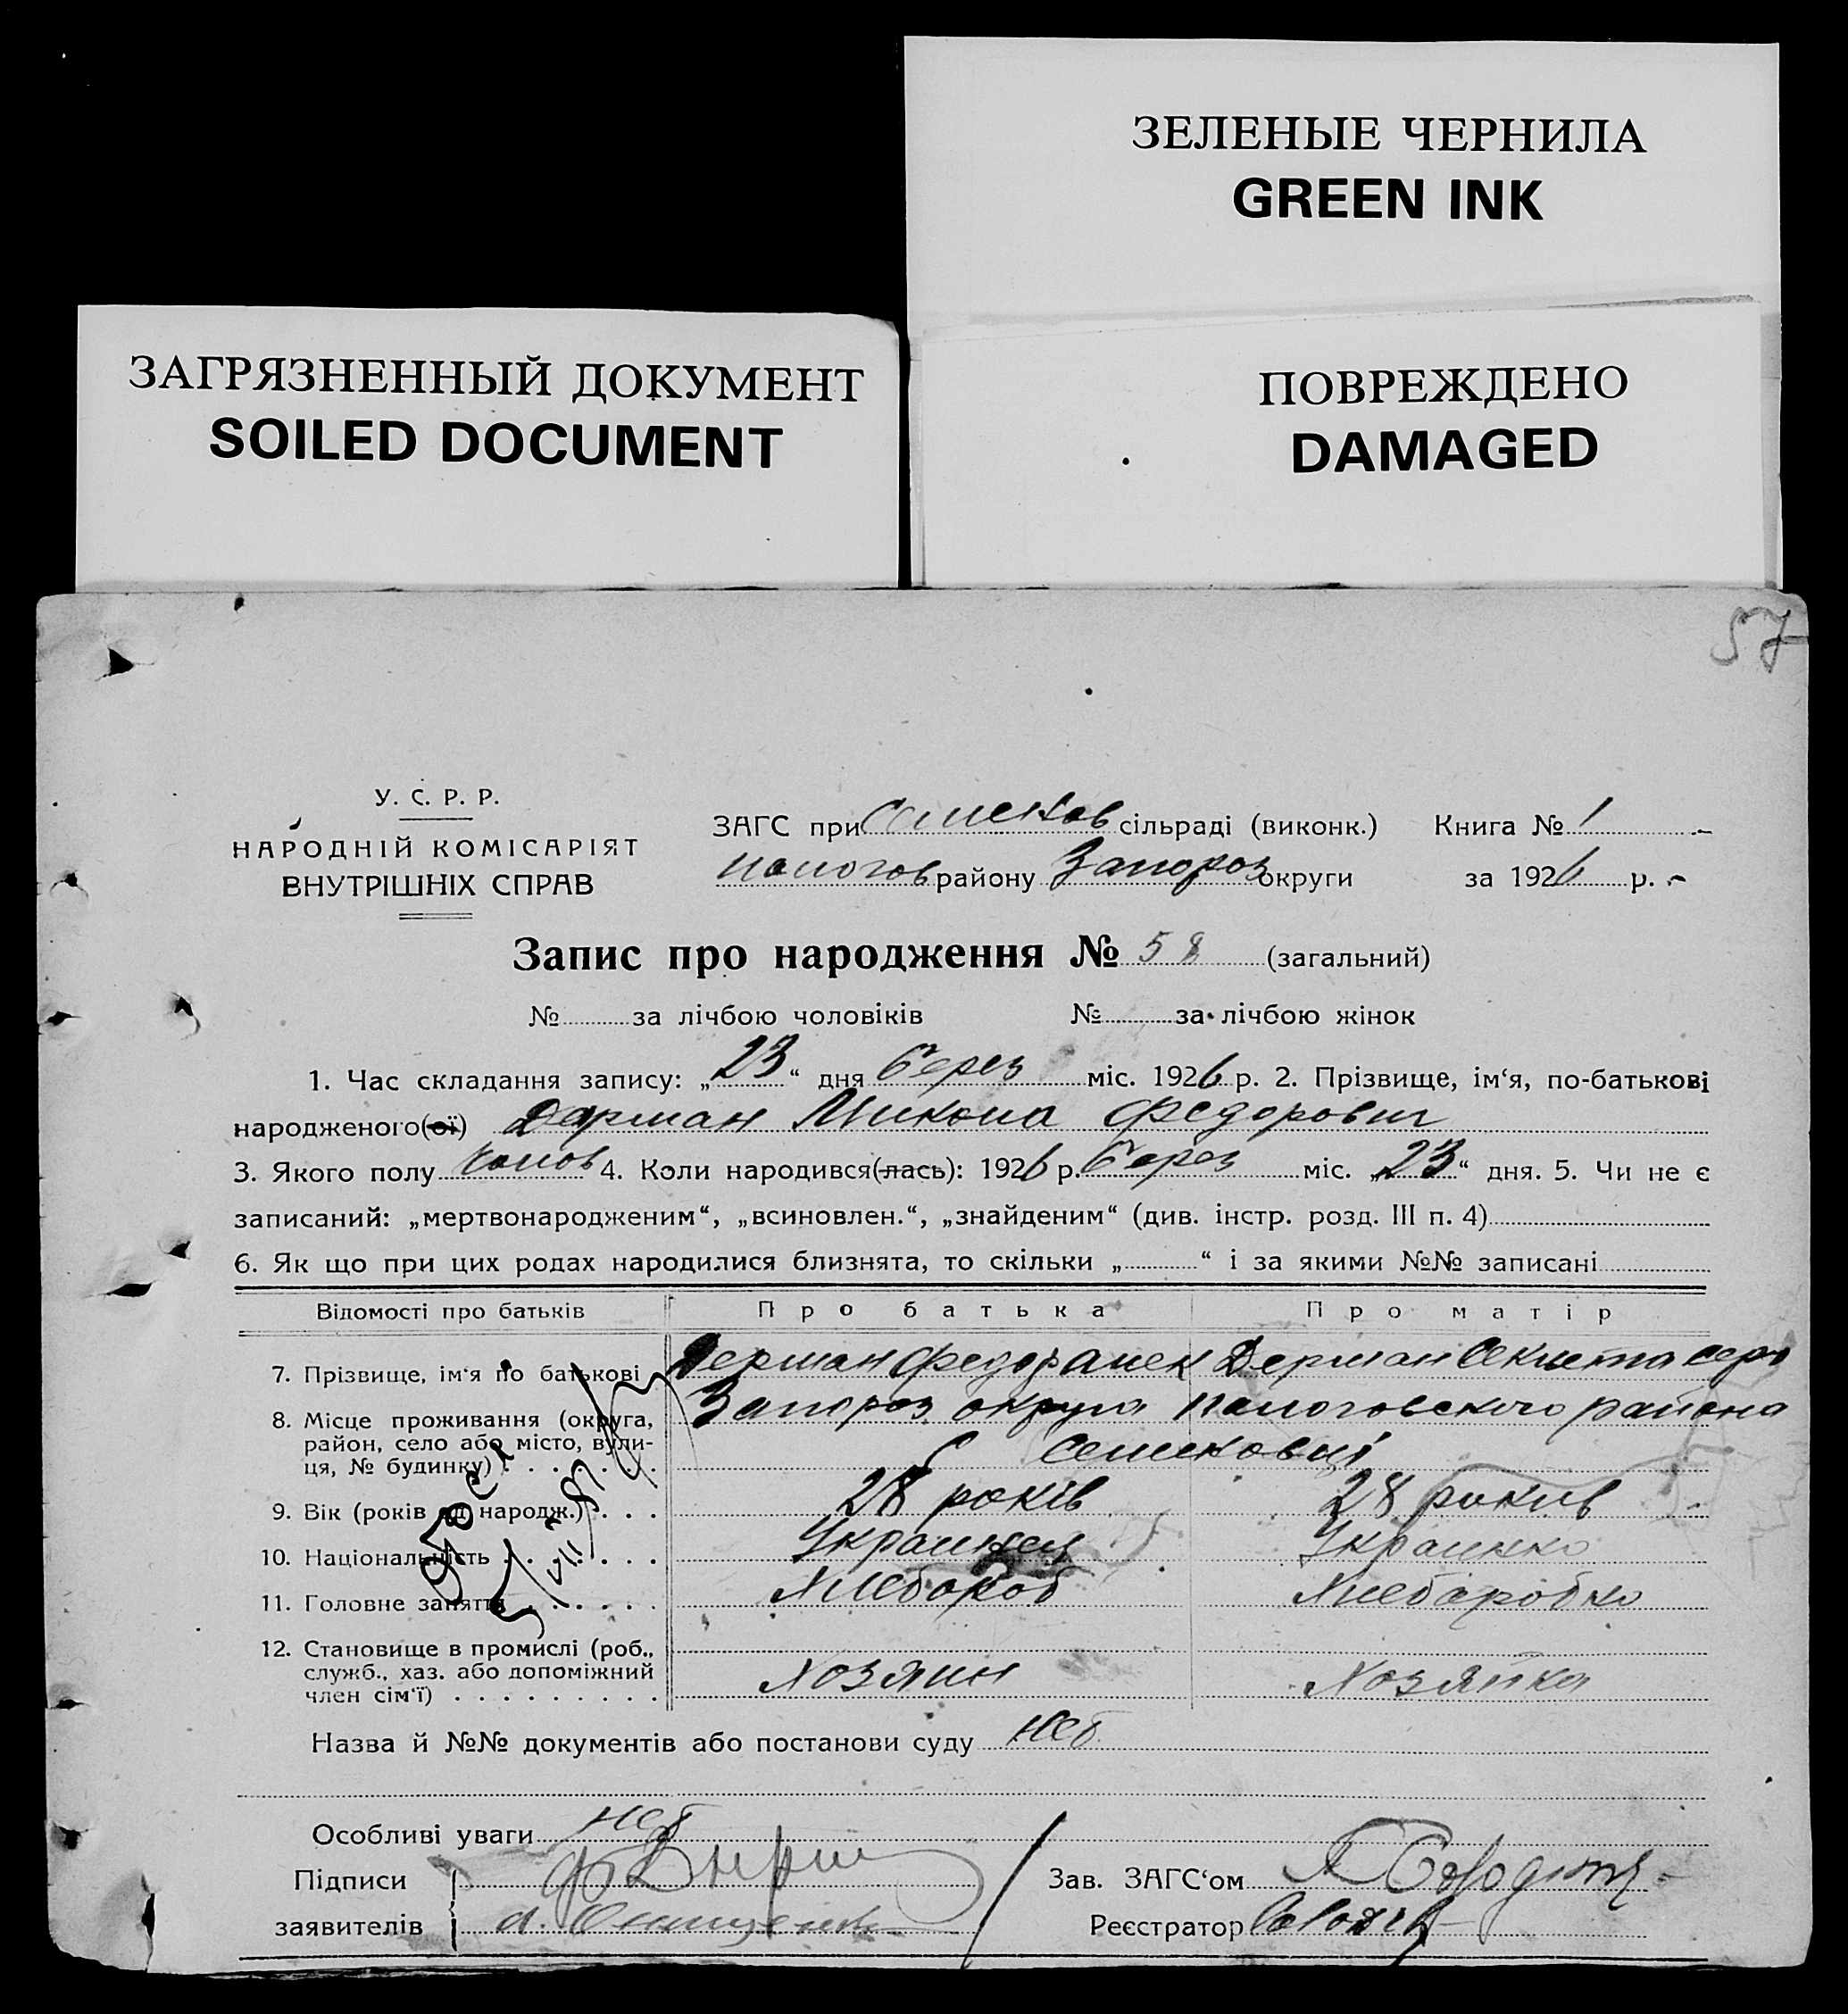 ЗЕЛЕНЫЕ ЧЕРНИЛА
GREEN INK
ЗАГРЯЗНЕННЫЙ ДОКУМЕНТ
SOILED DOCUMENT
ПОВРЕЖДЕНО
DAMAGED
57
У. С. Р. Р.
НАРОДНІЙ КОМІСАРІЯТ
ВНУТРІШНІХ СПРАВ
ЗАГС при Семенков сільраді (виконк.) Книга № 1
Пологов району Запороз округи за 1926 р.
Запис про народження № 58 (загальний)
№ за лічбою чоловіків № за лічбою жінок
1. Час складання запису: „23“ дня берез міс. 1926 р. 2. Прізвище, ім‘я, по-батькові
народженого(ої) Дерман Микола Федорович
3. Якого полу 4. Коли народився(лась): 1926 р. берез міс. „23“ дня. 5. Чи не є
записаний: „мертвонародженим“, „всиновлен.“, „знайденим“ (див. інстр. розд. III п. 4)
6. Як що при цих родах народилися близнята, то скільки „ “ і за якими №№ записані
Відомості про батьків Про батька Про матір
7. Прізвище, ім‘я по батькові Дерман Федор Дерман
8. Місце проживання (округа, район, село або місто, вулиця, № будинку) Запороз округа Пологовского района
с
9. Вік (років від народж.) 28 років 28 рокив
10. Національність Украинец Украинка
11. Головне заняття Хлебороб Хлеборобка
12. Становище в промислі (роб., служб., хаз. або допоміжний член сім‘ї) Хозяин Хозяйка
Назва й №№ документів або постанови суду нет
Особливі уваги нет
Підписи
заявителів
Зав. ЗАГС‘ом
Реєстратор